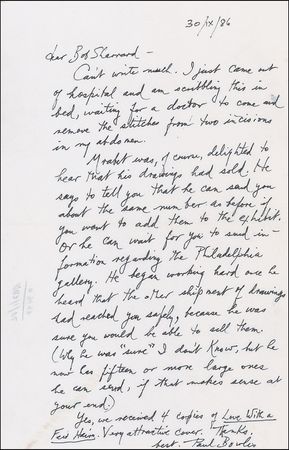 30/ix/86
dear Bob Sharrard –
Can't write much. I just came out
of hospital and am scribbling this in
bed, waiting for a doctor to come and
remove the stitches from two incisions
in my abdomen.
Mrabet was, of course, delighted to
hear that his drawings had sold. He
says to tell you that he can send you
about the same number as before if
you want to add them to the exhibit.
Or he can wait for you to send in-
formation regarding the Philadelphia
gallery. He began working hard once he
heard that the other shipment of drawings
had reached you safely, because he was
sure you would be able to sell them.
(Why he was "sure" I don't know, but he
now has fifteen or more large ones
he can send, if that makes sense at
your end.)
Yes, we received 4 copies of Love With a
Few Hairs. Very attractive cover. Thanks.
best. Paul Bowles